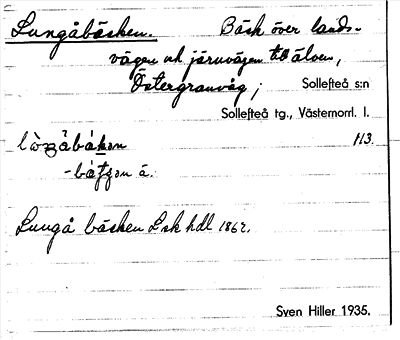 Lungåbäcken. Bäck över lands-
vägen och järnvägen till älven,
Östergranvåg; Sollefteå s:n
Sollefteå tg., Västernorrl. l.
113.
Lungå bäcken Lsk hdl 1862.
Sven Hiller 1935.